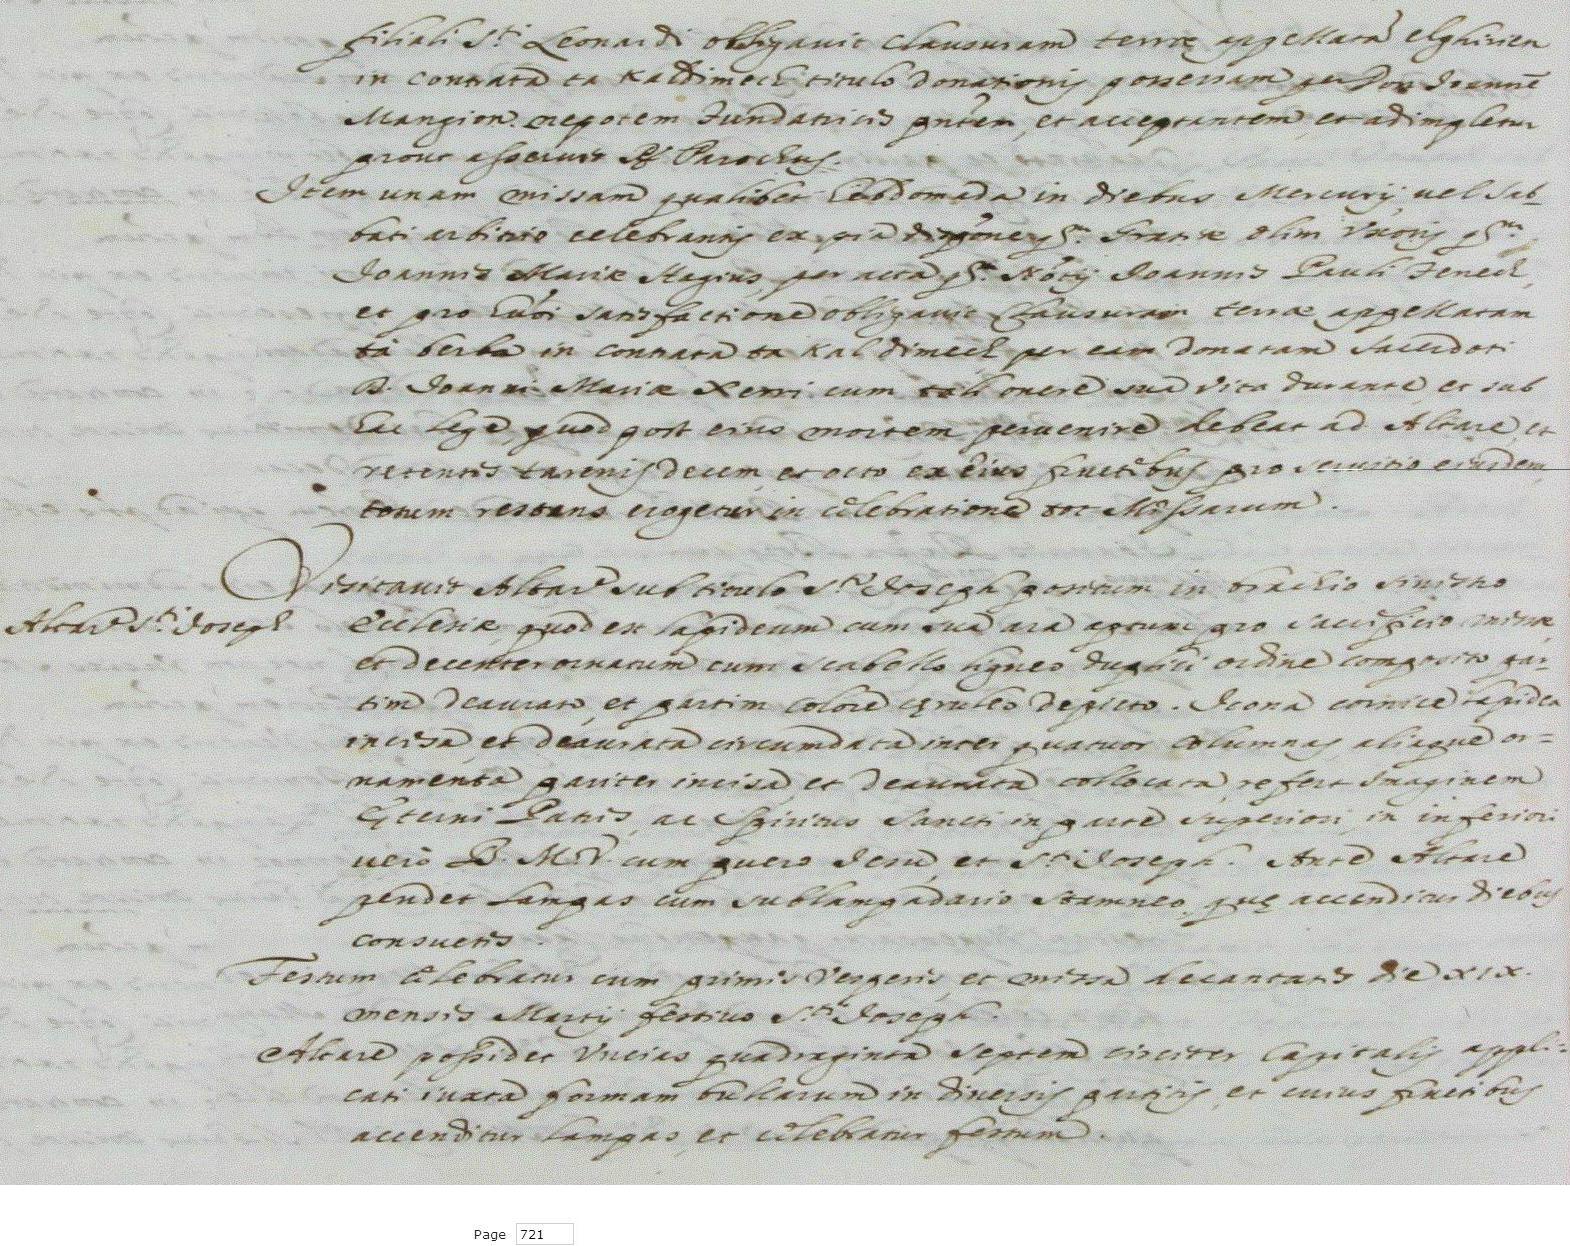 filiali S.ti Leonardi obligavit clausuram terræ appellatã elghirien
in contrata ta Kaldimech titulo donationis possessam per Don Joannẽ
Mangion nepotem Fundatricis pñtem, et acceptantem, et adimpletur
prout asseruit Rṣ Parochus.
Item unam missam qualibet hebdomada in diebus Mercurij vel Sab-
bati arbitrio celebrantis ex pia dispõne qm. Gratiæ olim Uxoris qm.
Joannis Mariæ Magius, per acta qm. Notrij Joannis Pauli Fenech,
et pro hmõi satisfactione obligavit Clausuram terræ appellatam
ta berba in contrata ta Kal dimech per eam donatam Sacerdoti
D. Joanni Mariæ Xerri cum tali onere sua vita durante, et sub
hac lege, quod post eius mortem pervenire debeat ad Altare, et
retentis tarenis decem, et octo ex eius fructibus pro servitio eiusdem
totum restans erogetur in celebratione tot Missarum.
Visitavit Altare sub titulo S.ti Joseph positum in brachio sinistro
Altare S.ti Joseph
Ecclesiæ, quod est lapideum cum sua ara aptum pro sacrificio missæ,
et decenter ornatum cum scabello ligneo duplici ordine composito par-
tim deaurato, et partim colore cęruleo depicto. Icona cornice lapidea
incisa, et deaurata circumdata inter quatuor columnas, aliaque or=
namenta pariter incisa, et deaurata collocata, refert Imaginem
Ęterni Patris, ac Spiritus Sancti in parte superiori, in inferiori
vero B. M. V. cum puero Jesu, et S.ti Joseph. Ante Altare
pendet Lampas cum sublampadario stamneo, quę accenditur diebus
consuetis.
Festum celebratur cum primis Vesperis, et missa decantatis die XIX.
mensis Martij festivo S.ti Joseph.
Altare possidet Uncias quadraginta septem circiter Capitalis appli=
cati iuxta formam bullarum in diversis partitis, et cuius fructibus
accenditur lampas, et celebratur festum.
Page 721